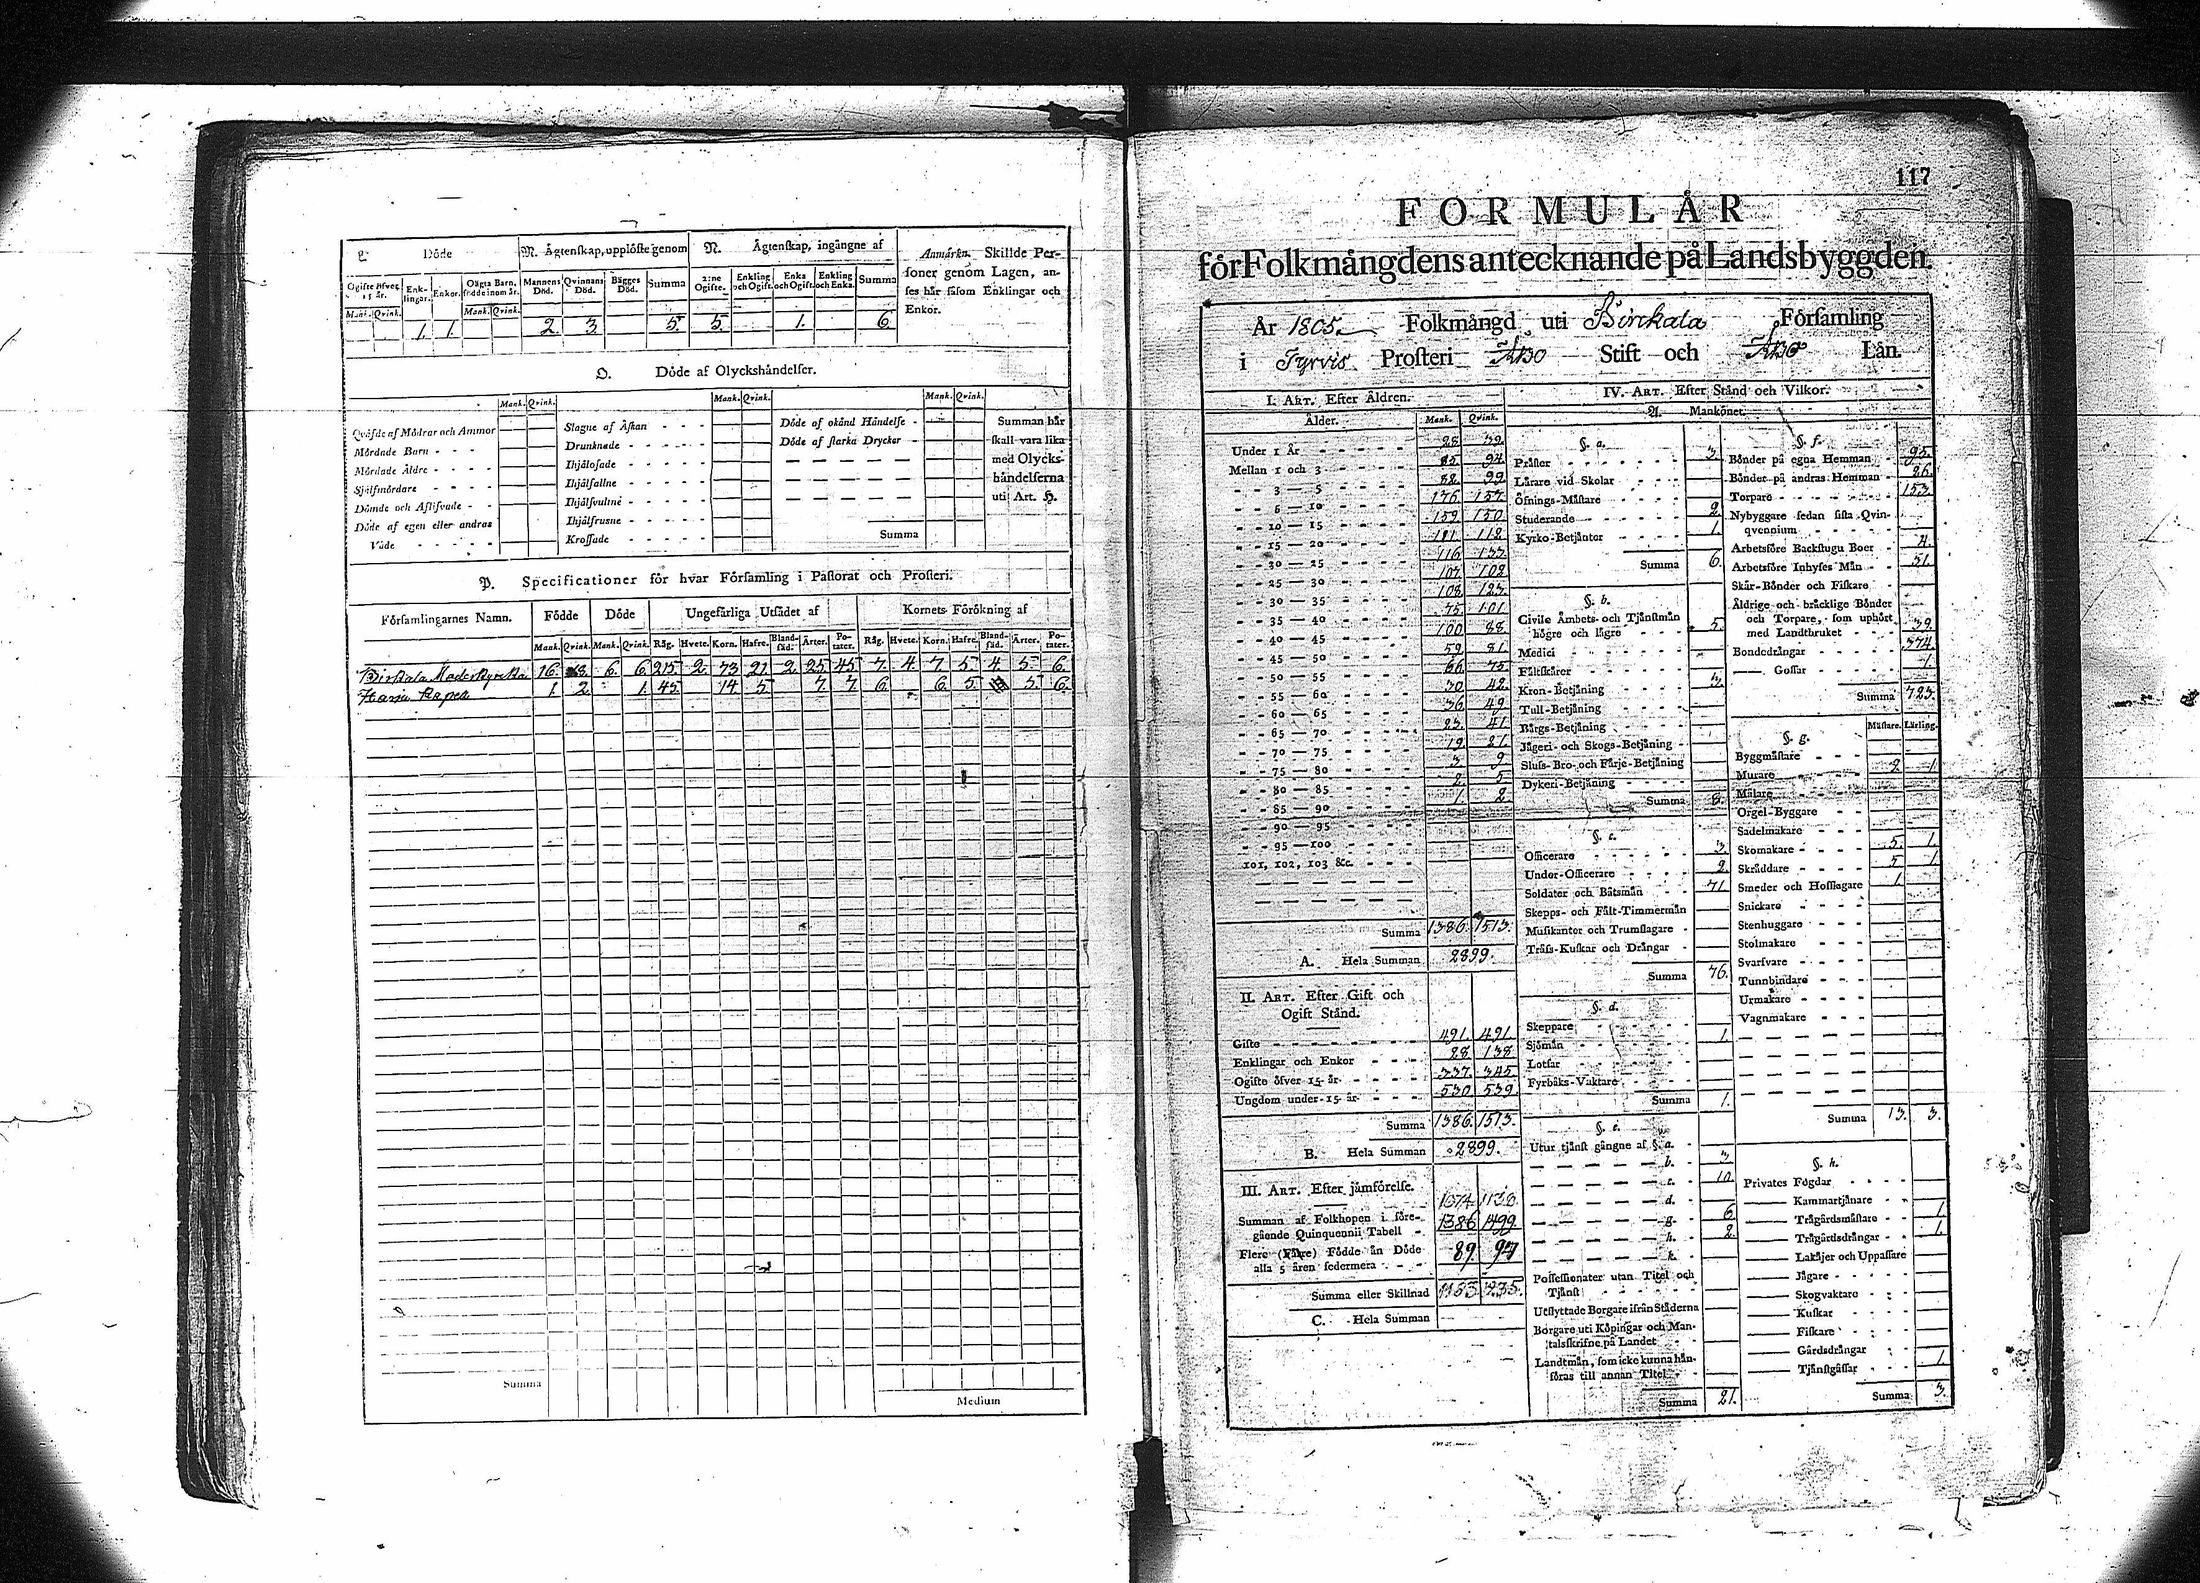 L. Döde
N. Ägtenskap, upplöste genom
N. Ägtenskap, ingångne af
Anmärkn. Skillde Per-
soner genom Lagen, an-
ses här såsom Enklingar och
Enkor.
Ogifte öfver 15 år. Enk-lingar. Enkor. Oägta Barn, födde inom år. Mannens Död. Qvinnans Död. Bägges Död. Summa 2:ne Ogifte. Enkling och Ogift. Enka och Ogift. Enkling och Enka. Summa
Mank. Qvink. Mank. Qvink.
1. 1. 2. 3. 5. 5. 1. 6.
O. Döde af Olyckshändelser.
Mank. Qvink. Mank. Qvink. Mank. Qvink.
Qväfde af Mödrar och Ammor
Mördade Barn
Mördade Äldre
Sjelfmördare
Dömde och Aflifvade
Döde af egen eller andras
Våde
Slagne af Åskan
Drunknade
Ihjälofade
Ihjälfallne
Ihjälsvultne
Ihjälfrusne
Krossade
Döde af okänd Händelse
Döde af starka Drycker
Summa
Summan här
skall vara lika
med Olycks-
händelserna
uti Art. H.
P. Specificationer för hvar Församling i Pastorat och Prosteri.
Församlingarnes Namn. Födde Döde Ungefärliga Utsädet af Kornets Förökning af
Mank. Qvink. Mank. Qvink. Råg. Hvete. Korn. Hafre. Bland-säd. Ärter. Po-tater. Råg. Hvete. Korn. Hafre. Bland-säd. Ärter. Po-tater.
Birkala Moderkyrka 16. 8. 6. 6. 215. 2. 73. 21. 2. 25. 45. 7. 4. 7. 5. 4. 5. 6.
Harju Capell 1. 2. 1. 45. 14. 5. 7. 7. 6. 6. 5. 5. 6.
Summa
Medium
117
FORMULÄR
för Folkmängdens antecknande på Landsbyggden.
År 1805. Folkmängd uti Birckala Församling
i Tyrvis Prosteri ÅBO Stift och ÅBO Län.
I. ART. Efter Åldren.
Ålder. Mank. Qvink.
Under 1 År 28. 39.
Mellan 1 och 3 85. 94.
3 — 5 82. 99.
5 — 10 176. 157.
10 — 15 159. 150.
15 — 20 111. 118.
20 — 25 116. 133.
25 — 30 107. 102.
30 — 35 108. 123.
35 — 40 75. 101.
40 — 45 100. 88.
45 — 50 59. 81.
50 — 55 66. 75.
55 — 60 30. 42.
60 — 65 36. 49.
65 — 70 23. 41.
70 — 75 19. 21.
75 — 80 3. 9.
80 — 85 2. 5.
85 — 90 1. 2.
90 — 95
95 — 100
101, 102, 103 &c.
Summa 1386. 1513.
A. Hela Summan 2899.
II. ART. Efter Gift och
Ogift Stånd.
Gifte 491. 491.
Enklingar och Enkor 28. 138.
Ogifte öfver 15 år 337. 345.
Ungdom under 15 år 530. 539.
Summa 1386. 1513.
B. Hela Summan 2899.
III. ART. Efter jämförelse.
Summan af Folkhopen i före-
gående Quinquennii Tabell 1386. 1499.
Flere (Färre) Födde än Döde
alla 5 åren sedermera 89. 97
Summa eller Skillnad 1163. 1235.
C. Hela Summan
IV. ART. Efter Stånd och Vilkor.
A. Mankönet.
§. a.
Präster 3.
Lärare vid Skolar
Öfnings-Mästare
Studerande 2.
Kyrko-Betjänter 1.
Summa 6.
§. b.
Civile Ämbets- och Tjänstmän
högre och lägre 5.
Medici
Fältskärer
Kron-Betjäning 3.
Tull-Betjäning
Bärgs-Betjäning
Jägeri- och Skogs-Betjäning
Sluss- Bro- och Färje-Betjäning
Dykeri-Betjäning
Summa 8.
§. c.
Officerare 3.
Under-Officerare 2.
Soldater och Båtsmän 71.
Skepps- och Fält-Timmermän
Musikanter och Trumslagare
Träss-Kuskar och Drängar
Summa 76.
§. d.
Skeppare
Sjömän 1.
Lotsar
Fyrbåks-Vaktare
Summa 1.
§. e.
Utur tjänst gångne af §. a.
b. 3.
c. 10.
d.
g. 6.
h. 2.
k.
Possessionater utan Titel och
Tjänst
Utflyttade Borgare ifrån Städerna
Borgare uti Köpingar och Man-
talsskrifne på Landet
Landtmän, som icke kunna hän-
föras till annan Titel
Summa 21.
§. f.
Bönder på egna Hemman 95.
Bönder på andras Hemman 26.
Torpare 153.
Nybyggare sedan sista Qvin-
qvennium
Arbetsföre Backstugu Boer 4.
Arbetsföre Inhyses Män 31.
Skär-Bönder och Fiskare
Åldrige och bräcklige Bönder
och Torpare, som uphört
med Landtbruket 39.
Bondedrängar 374.
— Gossar 1.
Summa 723.
Mästare. Lärling.
§. g.
Byggmästare
Murare 2. 1.
Målare
Orgel-Byggare
Sadelmakare
Skomakare 5. 1.
Skräddare 5. 1.
Smeder och Hofslagare 1.
Snickare
Stenhuggare
Stolmakare
Svarfvare
Tunnbindare
Urmakare
Vagnmakare
Summa 13. 3.
§. h.
Privates Fogdar
— Kammartjänare
— Trägårdsmästare 1.
— Trägårdsdrängar 1.
— Lakäjer och Uppassare
— Jägare
— Skogvaktare
— Kuskar
— Fiskare
— Gårdsdrängar
— Tjänstgåssar 1.
Summa 3.